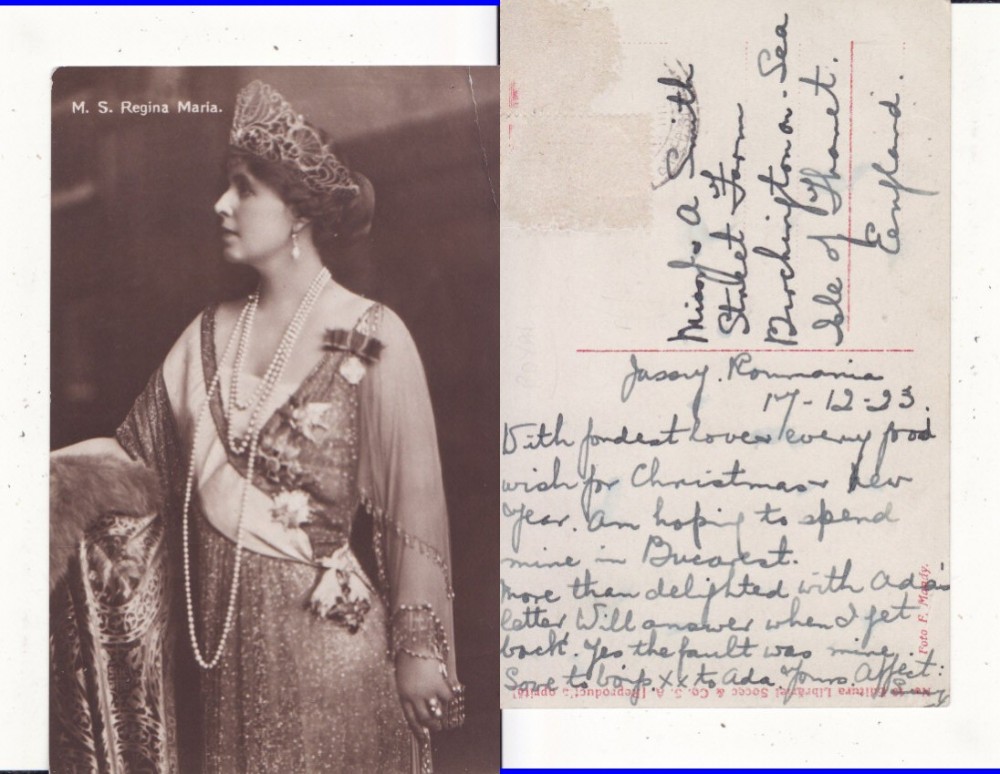 M. S. Regina Maria.
A Smith
Street Farm
Birchington-on-Sea
Isle of Thanet.
England.
Jassy. Roumania
17-12-23.
With fondest love & every good
wish for Christmas & New
Year. Am hoping to spend
mine in Bucarest.
More than delighted with Ada's
letter Will answer when I get
back. Yes the fault was mine.
Love to boys xx to Ada Yours Affect:
Foto F. Mandy.
Editura Librăriei Socec & Co. S. A. [Reproducț. oprită]